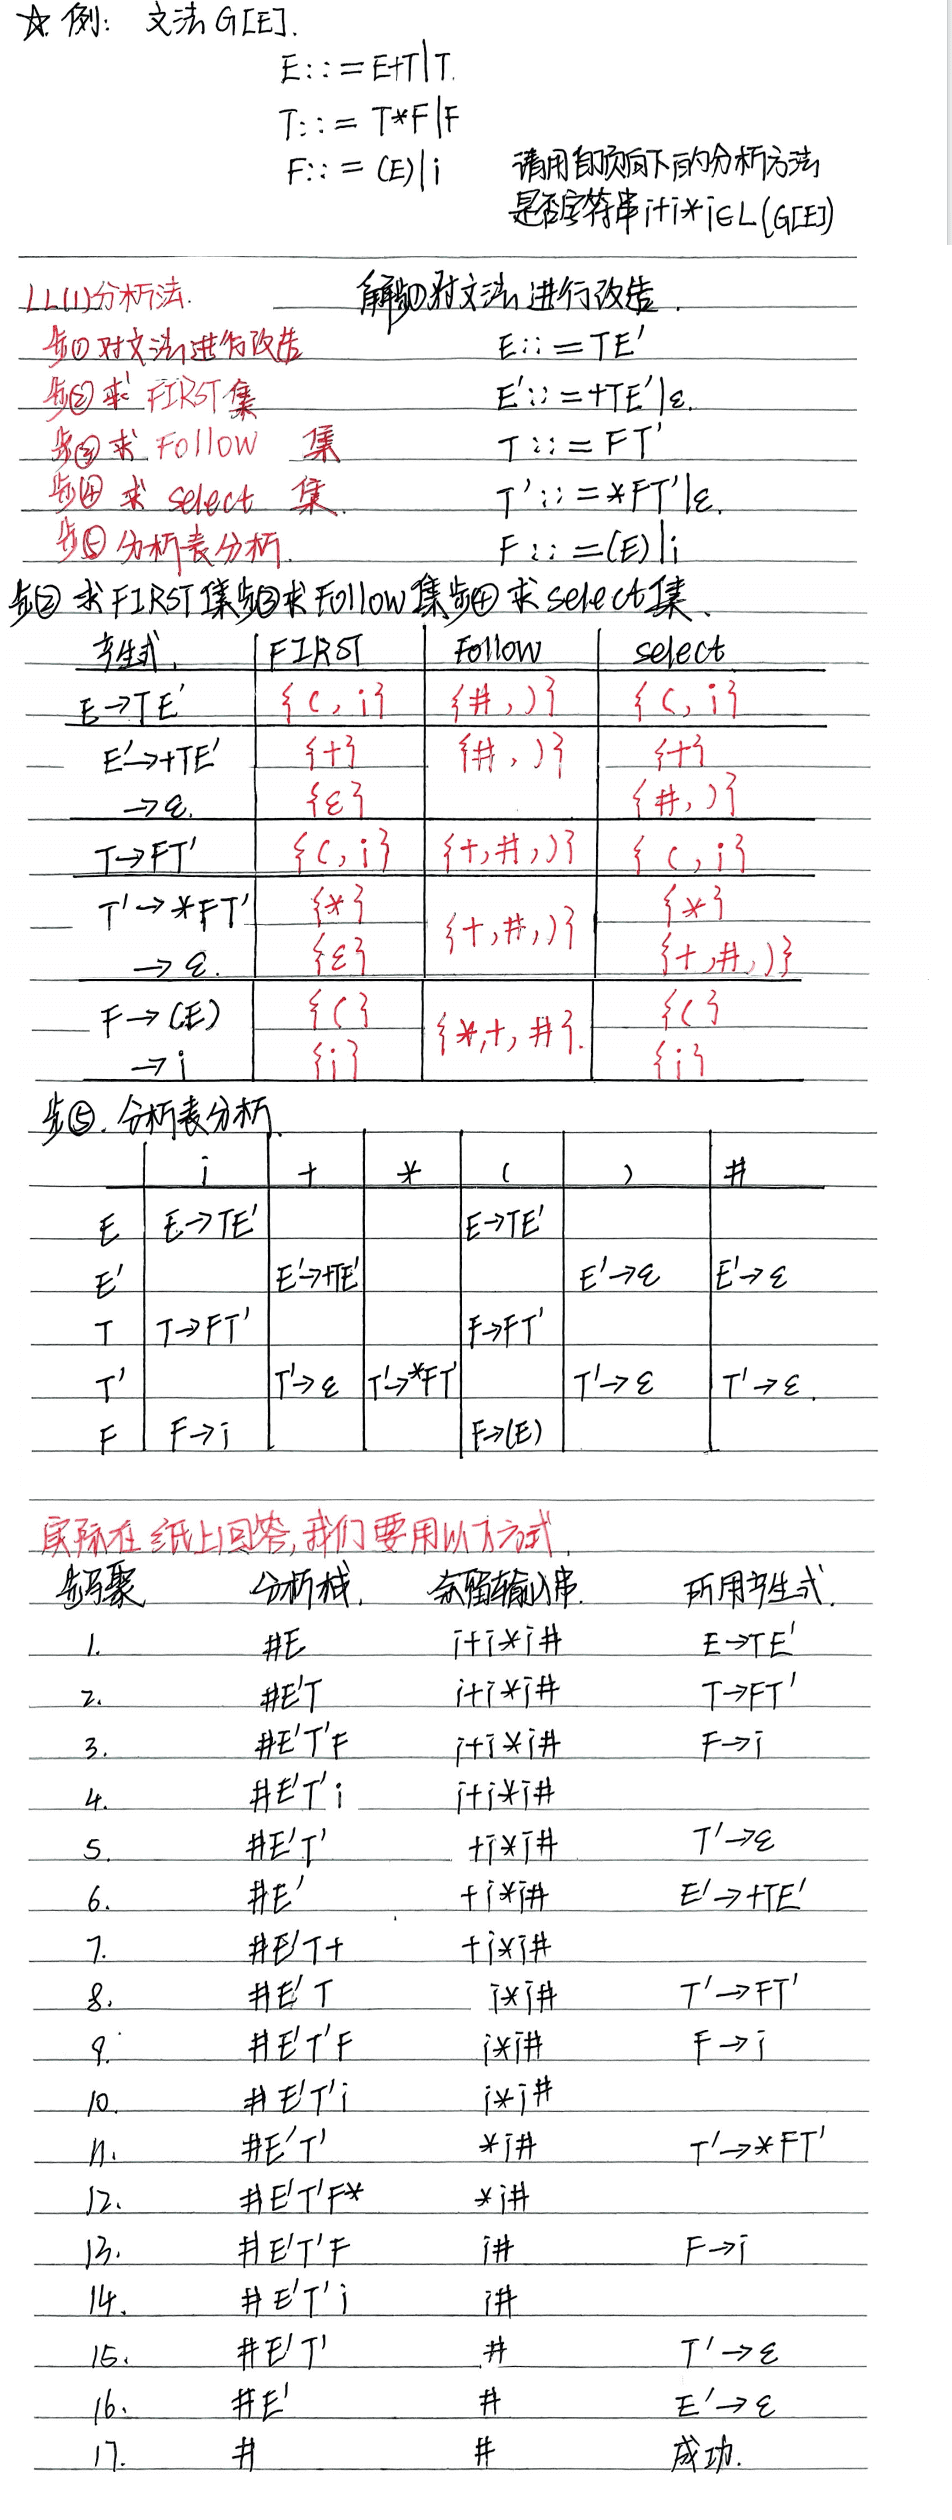 ☆ 例: 文法 G[E].
E::=E+T|T.
T::=T*F|F
F::=(E)|i
请用自顶向下的分析方法
是否字符串i+i*i∈L(G[E])
LL(1)分析法.
解: 步①对文法进行改造.
步①对文法进行改造
E::=TE'
步②求 FIRST集
E'::=+TE'|ε.
步③求 Follow 集
T::=FT'
步④ 求 select 集.
T'::=*FT'|ε.
步⑤分析表分析.
F::=(E)|i
步②求FIRST集步③求Follow集步④求select集.
产生式. FIRST Follow select
E→TE' {(,i} {#,)} {(,i}
E'→+TE' {+} {#,)} {+}
→ε. {ε} {#,)}
T→FT' {(,i} {+,#,)} {(,i}
T'→*FT' {*} {+,#,)} {*}
→ε. {ε} {+,#,)}
F→(E) {(} {*,+,#}. {(}
→i {i} {i}
步⑤.分析表分析.
i + * ( ) #
E E→TE' E→TE'
E' E'→+TE' E'→ε E'→ε
T T→FT' F→FT'
T' T'→ε T'→*FT' T'→ε T'→ε.
F F→i F→(E)
实际在纸上回答,我们要用以下方式.
步骤 分析栈. 余留输入串. 所用产生式.
1. #E i+i*i# E→TE'
2. #E'T i+i*i# T→FT'
3. #E'T'F i+i*i# F→i
4. #E'T'i i+i*i#
5. #E'T' +i*i# T'→ε
6. #E' +i*i# E'→+TE'
7. #E'T+ +i*i#
8. #E'T i*i# T'→FT'
9. #E'T'F i*i# F→i
10. #E'T'i i*i#
11. #E'T' *i# T'→*FT'
12. #E'T'F* *i#
13. #E'T'F i# F→i
14. #E'T'i i#
15. #E'T' # T'→ε
16. #E' # E'→ε
17. # # 成功.